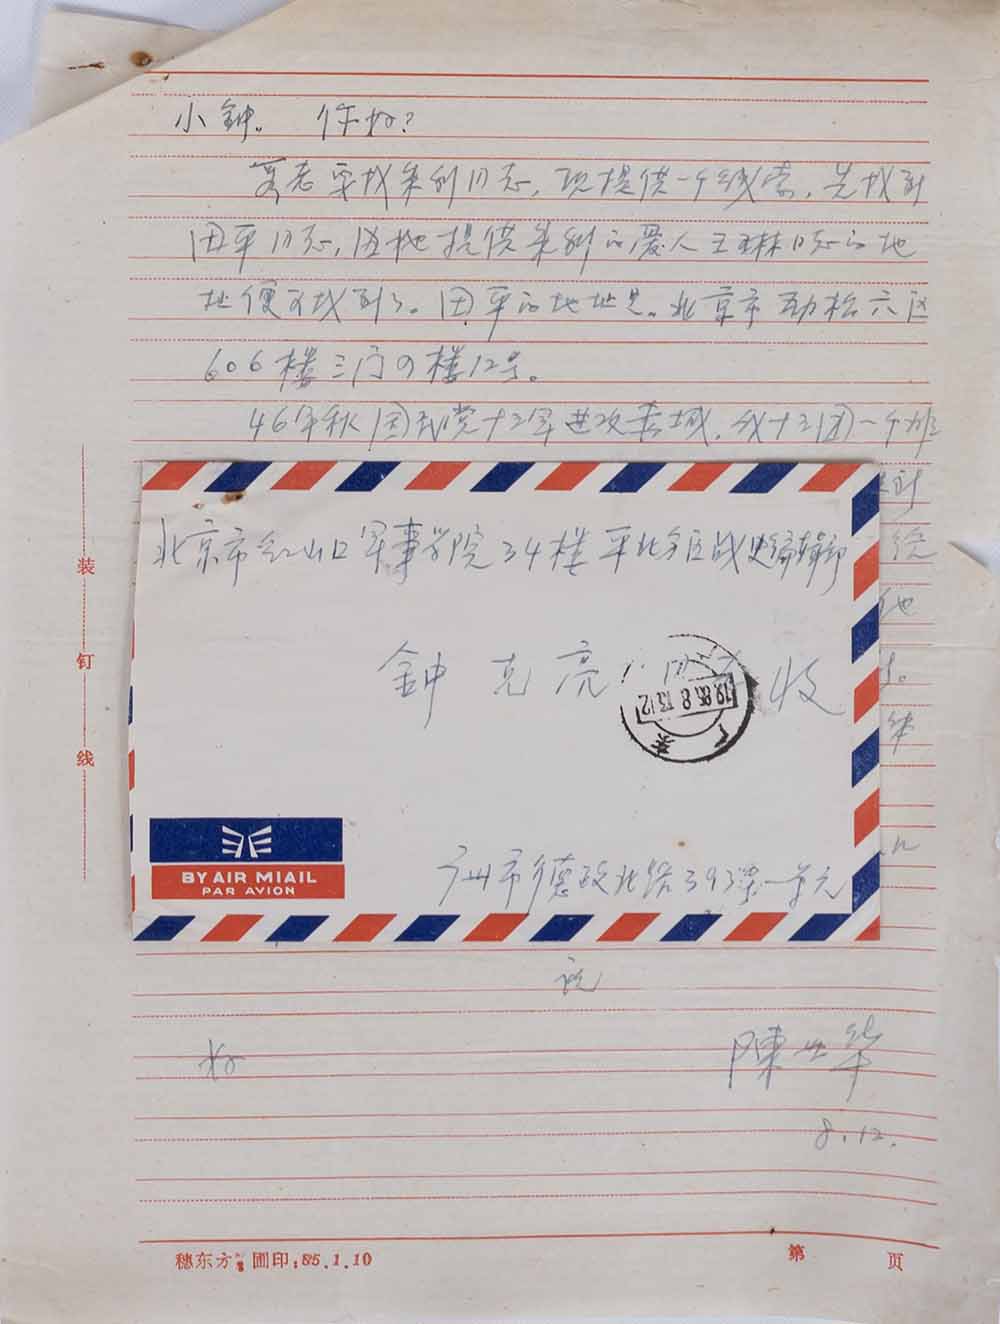 小钟。 你好？
要找朱利同志，现提供一个线索，先找到
田平同志，因他提供朱利的爱人王琳同志的地
址便可找到了。田平的地址是。北京市劲松六区
606楼三门9楼12号。
46年秋国民党十三军进攻赤城，我十三团一个班
北京市红山口军事学院34楼平北分区战史编辑部
钟克亮 同志收
1985.8.13.12
广东
BY AIR MIAIL
PAR AVION
广州市德政北路393号一单元
祝
好
陳世华
8.12.
装
钉
线
穗东方 印:85.1.10
第 页